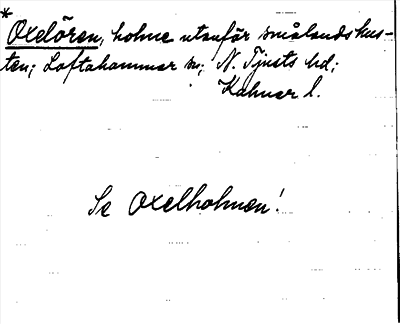 *
Oxelören, holme utanför smålandskus-
ten; Loftahammar sn; N. Tjusts hd;
Kalmar l.
Se Oxelholmen!